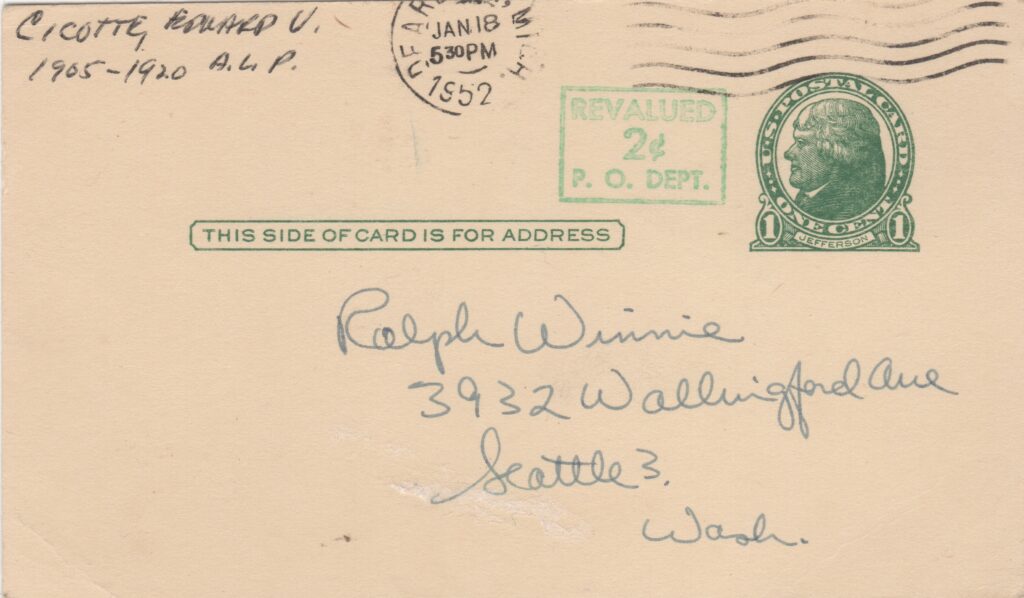 CICOTTE, EDWARD V.
1905-1920 A.L P.
MICH.
JAN 18
5 30 PM
1952
REVALUED
2¢
P. O. DEPT.
U.S. POSTAL CARD
1 ONE CENT 1
JEFFERSON
THIS SIDE OF CARD IS FOR ADDRESS
Ralph Winnie
3932 Wallingford Ave
Seattle 3.
Wash.